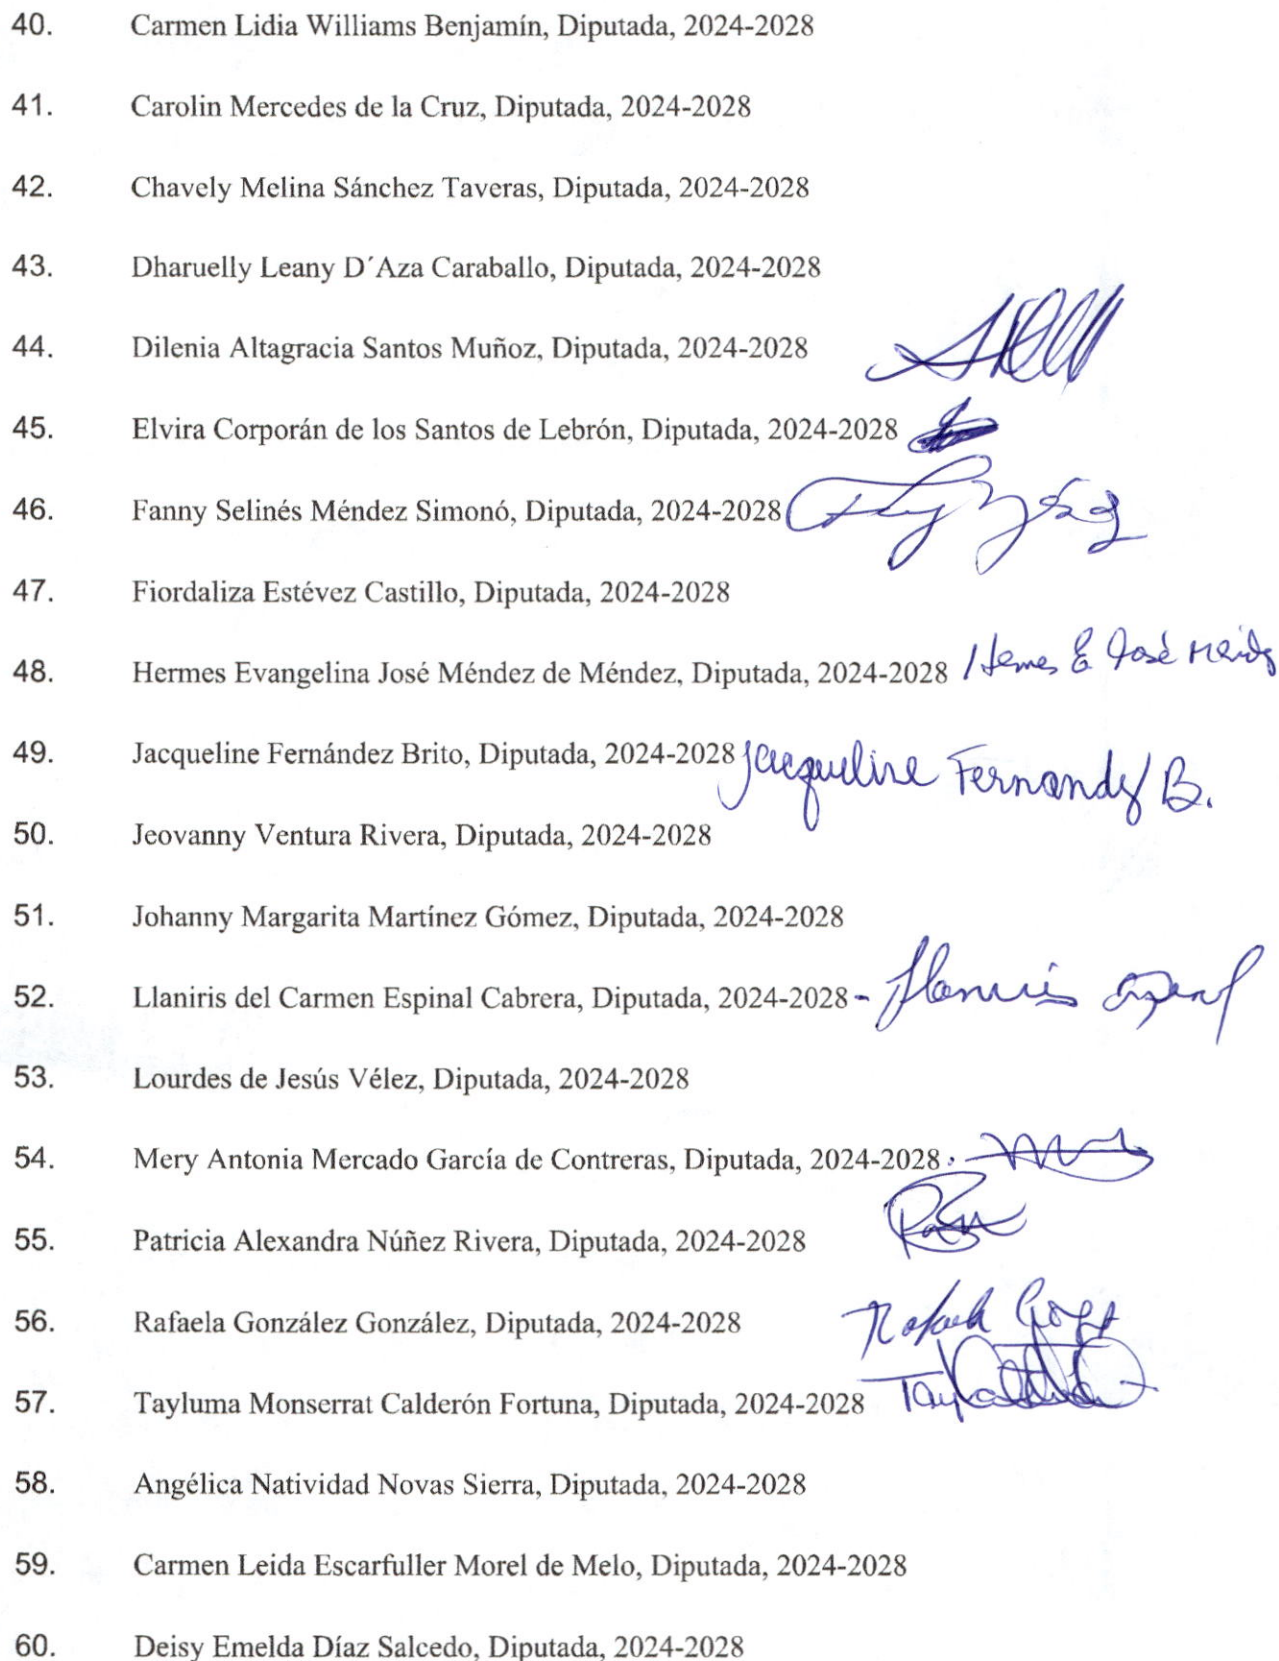 40. Carmen Lidia Williams Benjamín, Diputada, 2024-2028
41. Carolin Mercedes de la Cruz, Diputada, 2024-2028
42. Chavely Melina Sánchez Taveras, Diputada, 2024-2028
43. Dharuelly Leany D´Aza Caraballo, Diputada, 2024-2028
44. Dilenia Altagracia Santos Muñoz, Diputada, 2024-2028
45. Elvira Corporán de los Santos de Lebrón, Diputada, 2024-2028
46. Fanny Selinés Méndez Simonó, Diputada, 2024-2028
47. Fiordaliza Estévez Castillo, Diputada, 2024-2028
48. Hermes Evangelina José Méndez de Méndez, Diputada, 2024-2028 E José
49. Jacqueline Fernández Brito, Diputada, 2024-2028 Jacqueline B.
50. Jeovanny Ventura Rivera, Diputada, 2024-2028
51. Johanny Margarita Martínez Gómez, Diputada, 2024-2028
52. Llaniris del Carmen Espinal Cabrera, Diputada, 2024-2028 -
53. Lourdes de Jesús Vélez, Diputada, 2024-2028
54. Mery Antonia Mercado García de Contreras, Diputada, 2024-2028
55. Patricia Alexandra Núñez Rivera, Diputada, 2024-2028
56. Rafaela González González, Diputada, 2024-2028
57. Tayluma Monserrat Calderón Fortuna, Diputada, 2024-2028
58. Angélica Natividad Novas Sierra, Diputada, 2024-2028
59. Carmen Leida Escarfuller Morel de Melo, Diputada, 2024-2028
60. Deisy Emelda Díaz Salcedo, Diputada, 2024-2028